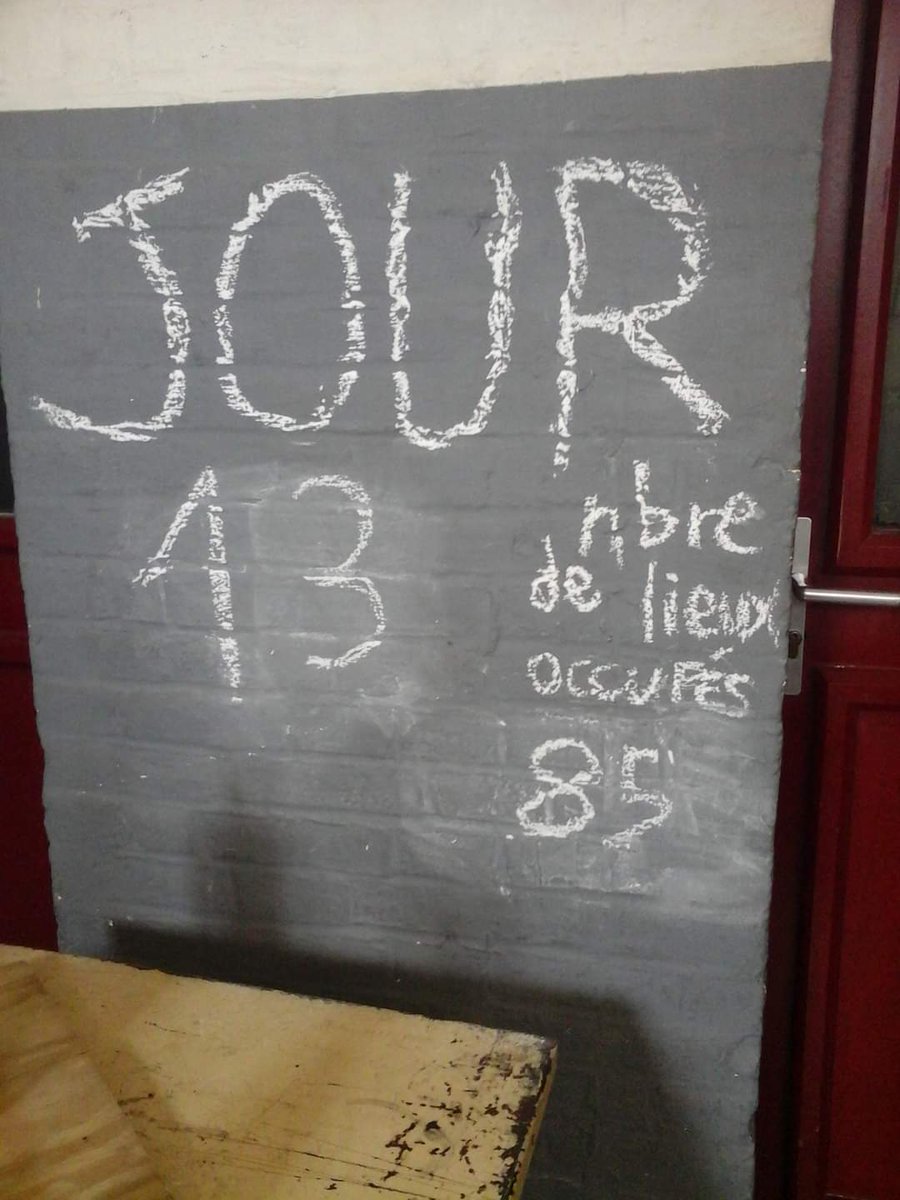 JOUR
13
nbre
de lieux
occupés
85